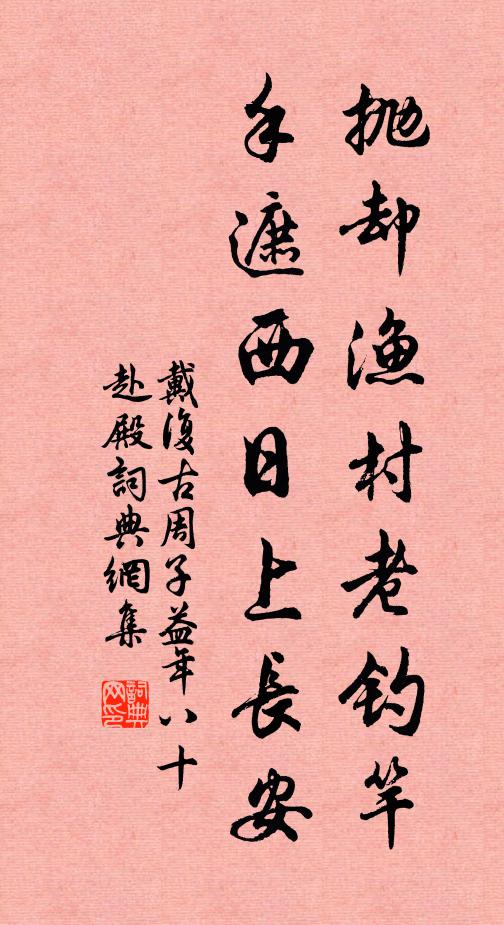 拋却漁村老釣竿
手遮西日上長安
戴復古周子益年八十
赴殿詞典網集
詞典
网印